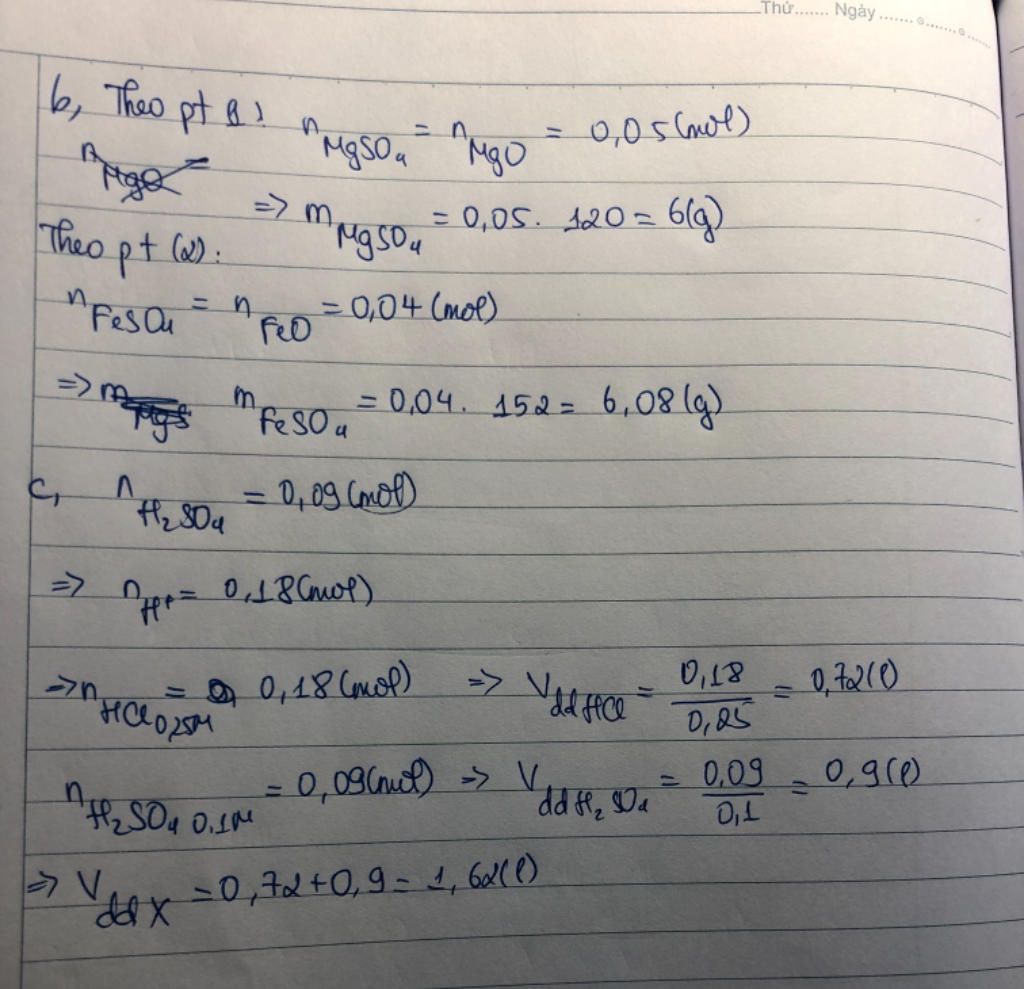 Thứ....... Ngày ....................
b, Theo pt 1: n MgSO4 = n MgO = 0,05(mol)
n MgO =
=> m MgSO4 = 0,05. 120 = 6(g)
Theo pt (2):
n FeSO4 = n FeO = 0,04 (mol)
=> m MgS m FeSO4 = 0,04. 152 = 6,08(g)
c, n H2SO4 = 0,09(mol)
=> n H+ = 0,18(mol)
=> n HCl 0,25M = 0,18(mol) => V dd HCl = 0,18/0,25 = 0,72(l)
n H2SO4 0.1M = 0,09(mol) => V dd H2SO4 = 0,09/0,1 = 0,9(l)
=> V dd X = 0,72+0,9 = 1,62(l)